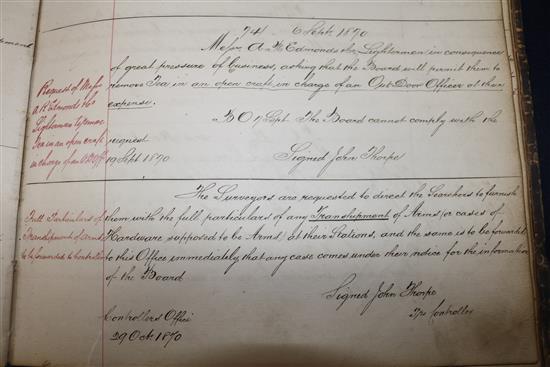 741 6 Sept 1870
Messrs A H Edmonds & Co Lightermen in consequence
of great pressure of business, asking that the Board will permit them to
remove Tea in an open craft in charge of an Out Door Officer at their
expense.
Request of Messrs
A H Edmonds & Co
Lightermen to remove
Tea in an open craft
in charge of an O D Offr
B O 17 Sept. The Board cannot comply with the
request
19 Sept 1870 Signed John Thorpe
The Surveyors are requested to direct the Searchers to furnish
them with the full particulars of any Transhipment of Arms (or cases of
Hardware supposed to be Arms) at their Stations, and the same is to be forwarded
to this Office immediately that any case comes under their notice for the information
of the Board
Full Particulars of
Transhipment of arms
to be forwarded to
Signed John Thorpe
Controller
Controllers Office
29 Oct. 1870